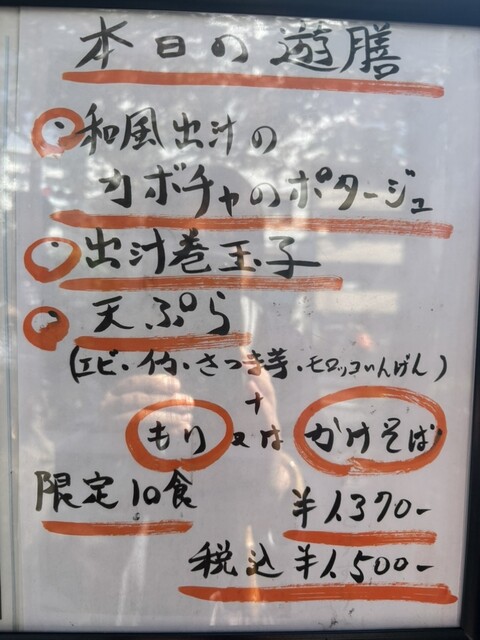 本日の遊膳
・和風出汁の
カボチャのポタージュ
・出汁巻玉子
・天ぷら
(エビ・竹・さつま芋・モロッコいんげん)
+
もり 又は かけそば
限定10食
¥1,370-
税込¥1,500-